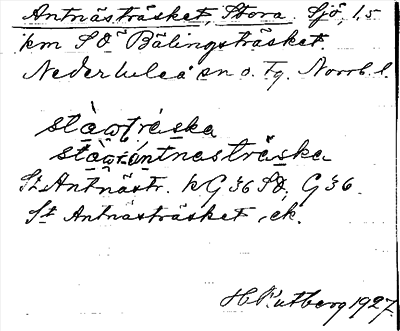 Antnästräsket, Stora. Sjö, 1,5
km SÖ Bälingsträsket.
Nederluleå sn o. tg. Norrb. l.
St. Antnästr. kG 36 SÖ, G 36.
St Antnästräsket, ek.
H Rutberg 1927.